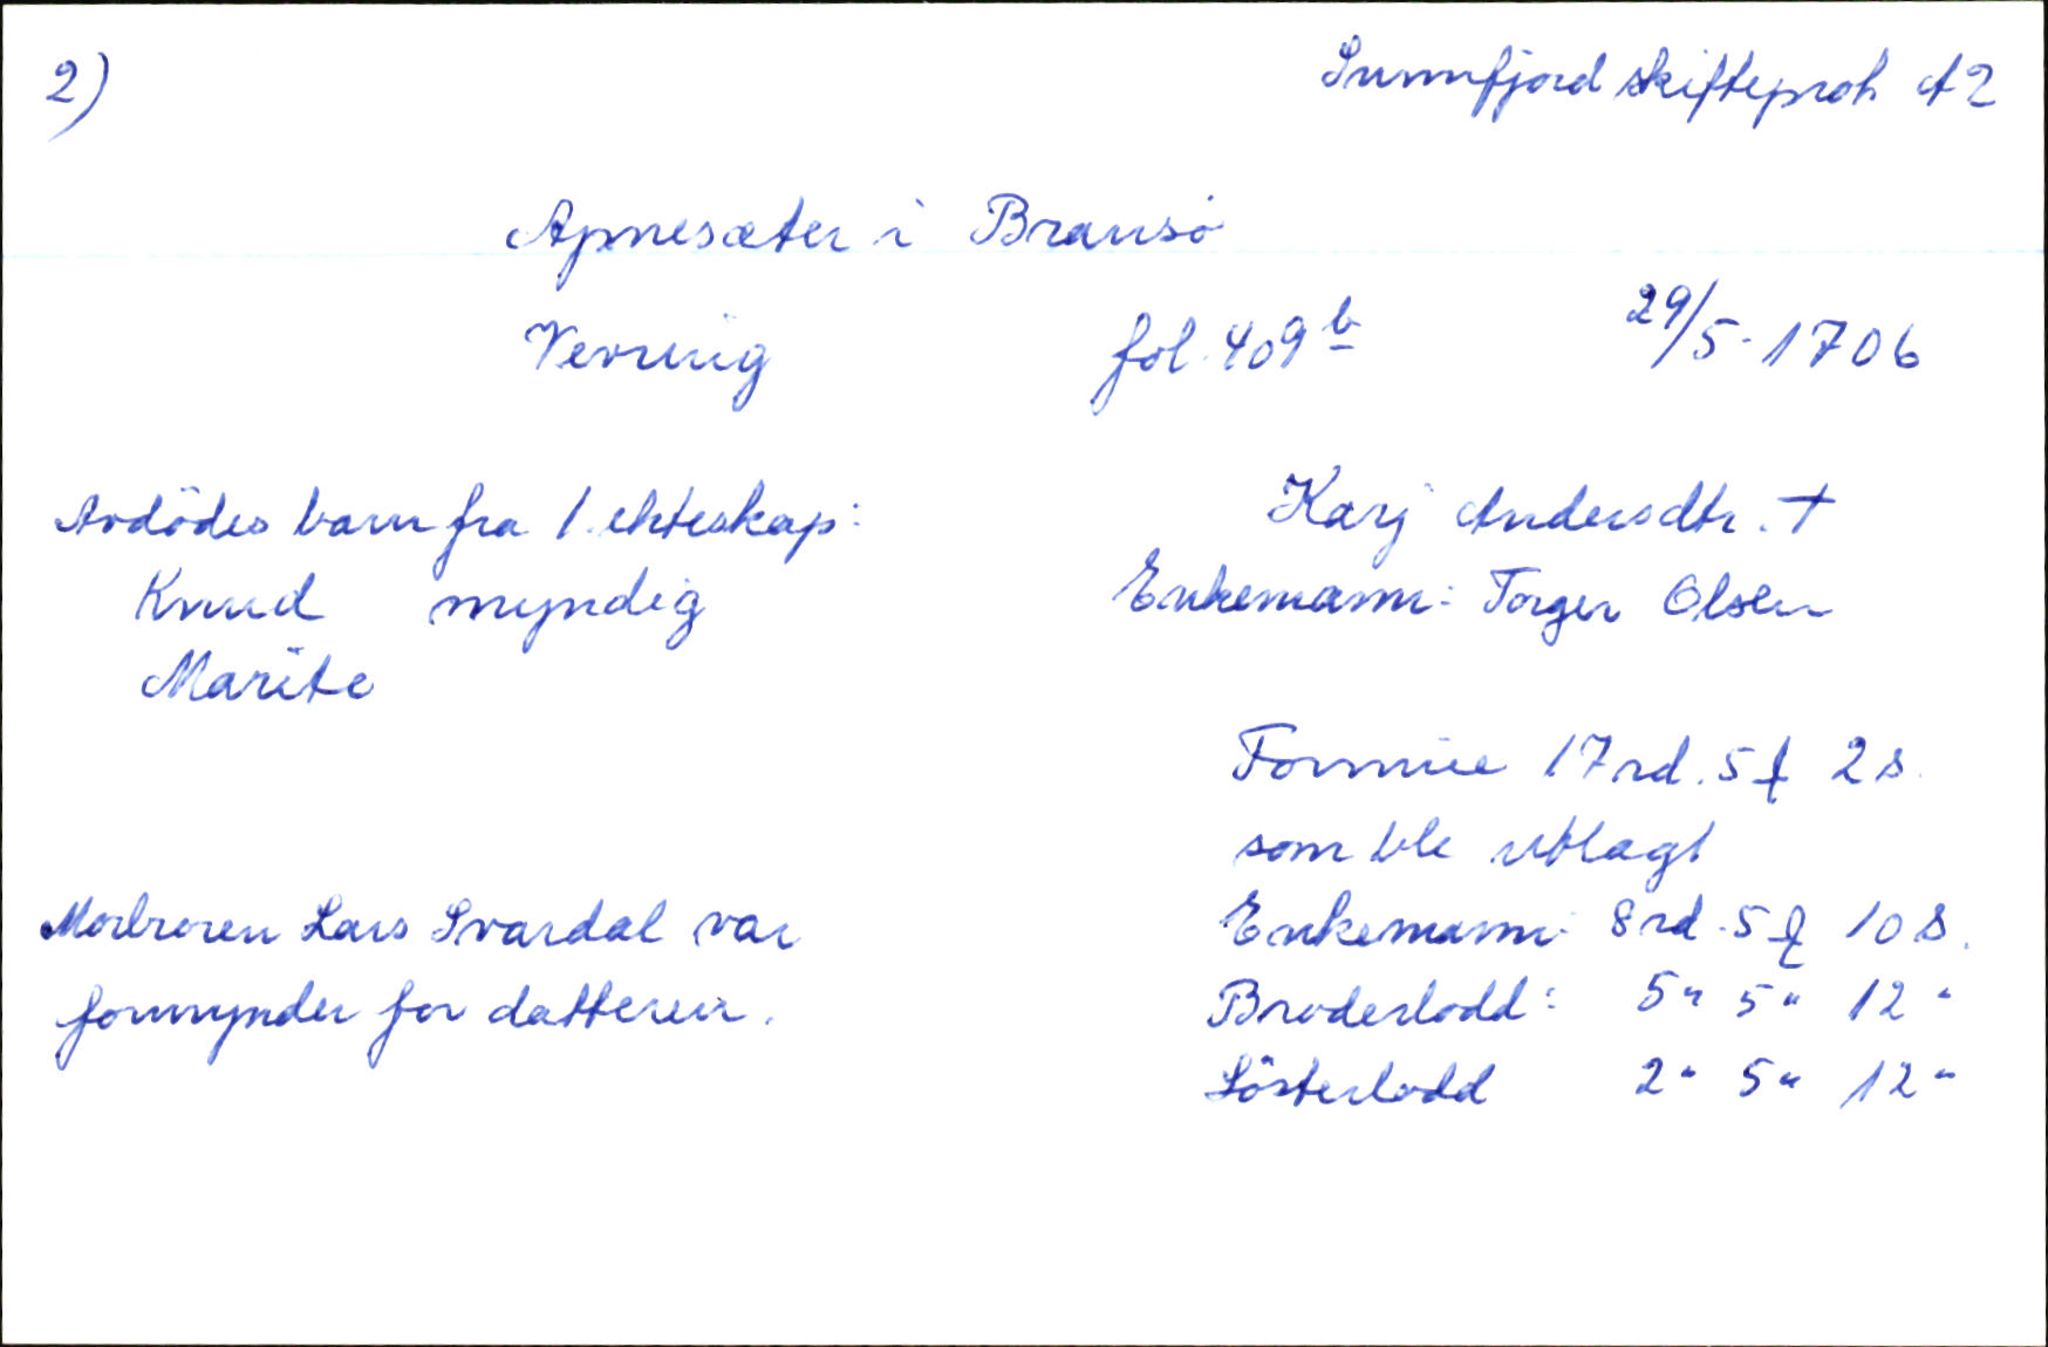 2)
Sunnfjord skifteprot A2
Apnesæter i Bransö
Vevring fol. 409 b 29/5-1706
Avdödes barn fra 1. ekteskap:
Knud myndig
Marite
Morbroren Lars Svardal var
formynder for datteren.
Karj Andersdtr. †
Enkemann: Torger Olsen
Formue 17 rd. 5 f 2 s.
som ble utlagt
Enkemann: 8 rd. 5 f 10 s.
Broderlodd: 5 " 5 " 12 "
Sösterlodd 2 " 5 " 12 "